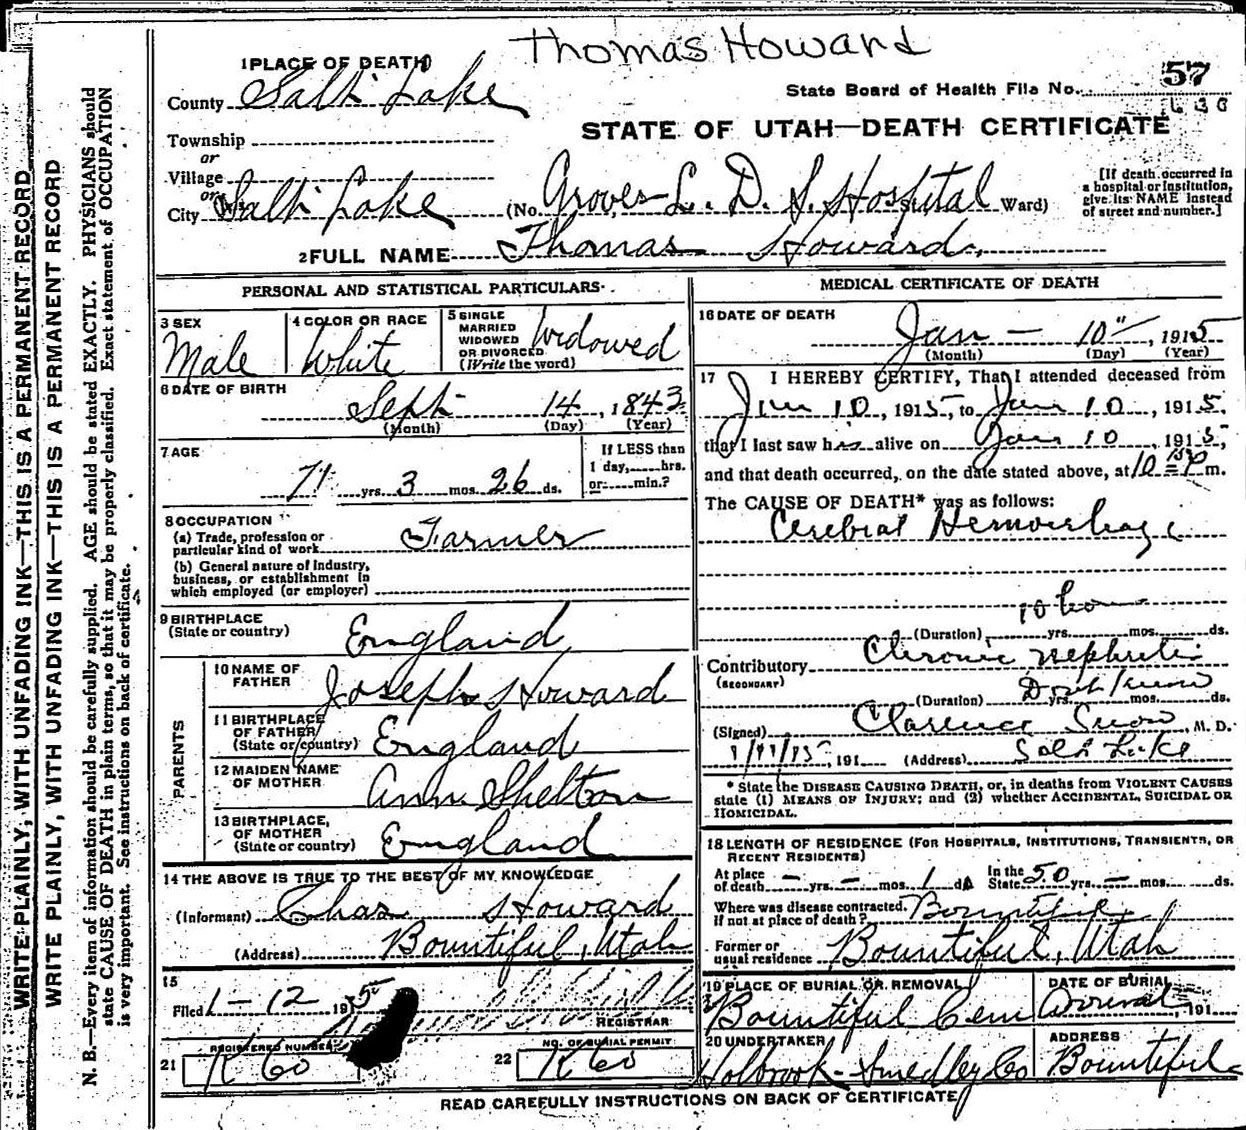 Thomas Howard
1 PLACE OF DEATH
County Salt Lake
State Board of Health File No. 57
STATE OF UTAH—DEATH CERTIFICATE
Township
or
Village
or
City Salt Lake (No. Groves L. D. S. Hospital Ward)
[If death occurred in
a hospital or institution,
give its NAME instead
of street and number.]
2 FULL NAME Thomas Howard
PERSONAL AND STATISTICAL PARTICULARS
3 SEX
Male
4 COLOR OR RACE
White
5 SINGLE
MARRIED
WIDOWED
OR DIVORCED
(Write the word)
Widowed
6 DATE OF BIRTH
Sept 14, 1843
(Month) (Day) (Year)
7 AGE
71 yrs. 3 mos. 26 ds.
If LESS than
1 day, hrs.
or min.?
8 OCCUPATION
(a) Trade, profession or
particular kind of work Farmer
(b) General nature of Industry,
business, or establishment in
which employed (or employer)
9 BIRTHPLACE
(State or country) England
PARENTS
10 NAME OF
FATHER Joseph Howard
11 BIRTHPLACE
OF FATHER
(State or country) England
12 MAIDEN NAME
OF MOTHER Ann Shelton
13 BIRTHPLACE,
OF MOTHER
(State or country) England
14 THE ABOVE IS TRUE TO THE BEST OF MY KNOWLEDGE
(Informant) Chas Howard
(Address) Bountiful, Utah
15
Filed 1-12 1915
REGISTRAR
REGISTERED NUMBER
21 K 60
NO. OF BURIAL PERMIT
22 K 60
MEDICAL CERTIFICATE OF DEATH
16 DATE OF DEATH
Jan — 10", 1915
(Month) (Day) (Year)
17 I HEREBY CERTIFY, That I attended deceased from
Jan 10, 1915, to Jan 10, 1915,
that I last saw his alive on Jan 10, 1915,
and that death occurred, on the date stated above, at 10 P m.
The CAUSE OF DEATH* was as follows:
Cerebral Hemorrhage
10 hours
(Duration) yrs. mos. ds.
Contributory Chronic Nephritis
(SECONDARY)
Don't know
(Duration) yrs. mos. ds.
(Signed) Clarence Snow, M. D.
1/11/15, 191 (Address) Salt Lake
* State the DISEASE CAUSING DEATH, or, in deaths from VIOLENT CAUSES
state (1) MEANS OF INJURY; and (2) whether ACCIDENTAL, SUICIDAL OR
HOMICIDAL.
18 LENGTH OF RESIDENCE (FOR HOSPITALS, INSTITUTIONS, TRANSIENTS, OR
RECENT RESIDENTS)
At place
of death — yrs. — mos. 1 ds. In the State 50 yrs. — mos. ds.
Where was disease contracted,
if not at place of death? Bountiful
Former or
usual residence Bountiful, Utah
19 PLACE OF BURIAL OR REMOVAL
Bountiful Cem
DATE OF BURIAL
191
20 UNDERTAKER
Holbrook-Smedley Co
ADDRESS
Bountiful
READ CAREFULLY INSTRUCTIONS ON BACK OF CERTIFICATE
WRITE PLAINLY, WITH UNFADING INK—THIS IS A PERMANENT RECORD
WRITE PLAINLY, WITH UNFADING INK—THIS IS A PERMANENT RECORD
N. B.—Every item of information should be carefully supplied. AGE should be stated EXACTLY. PHYSICIANS should
state CAUSE OF DEATH in plain terms, so that it may be properly classified. Exact statement of OCCUPATION
is very important. See instructions on back of certificate.